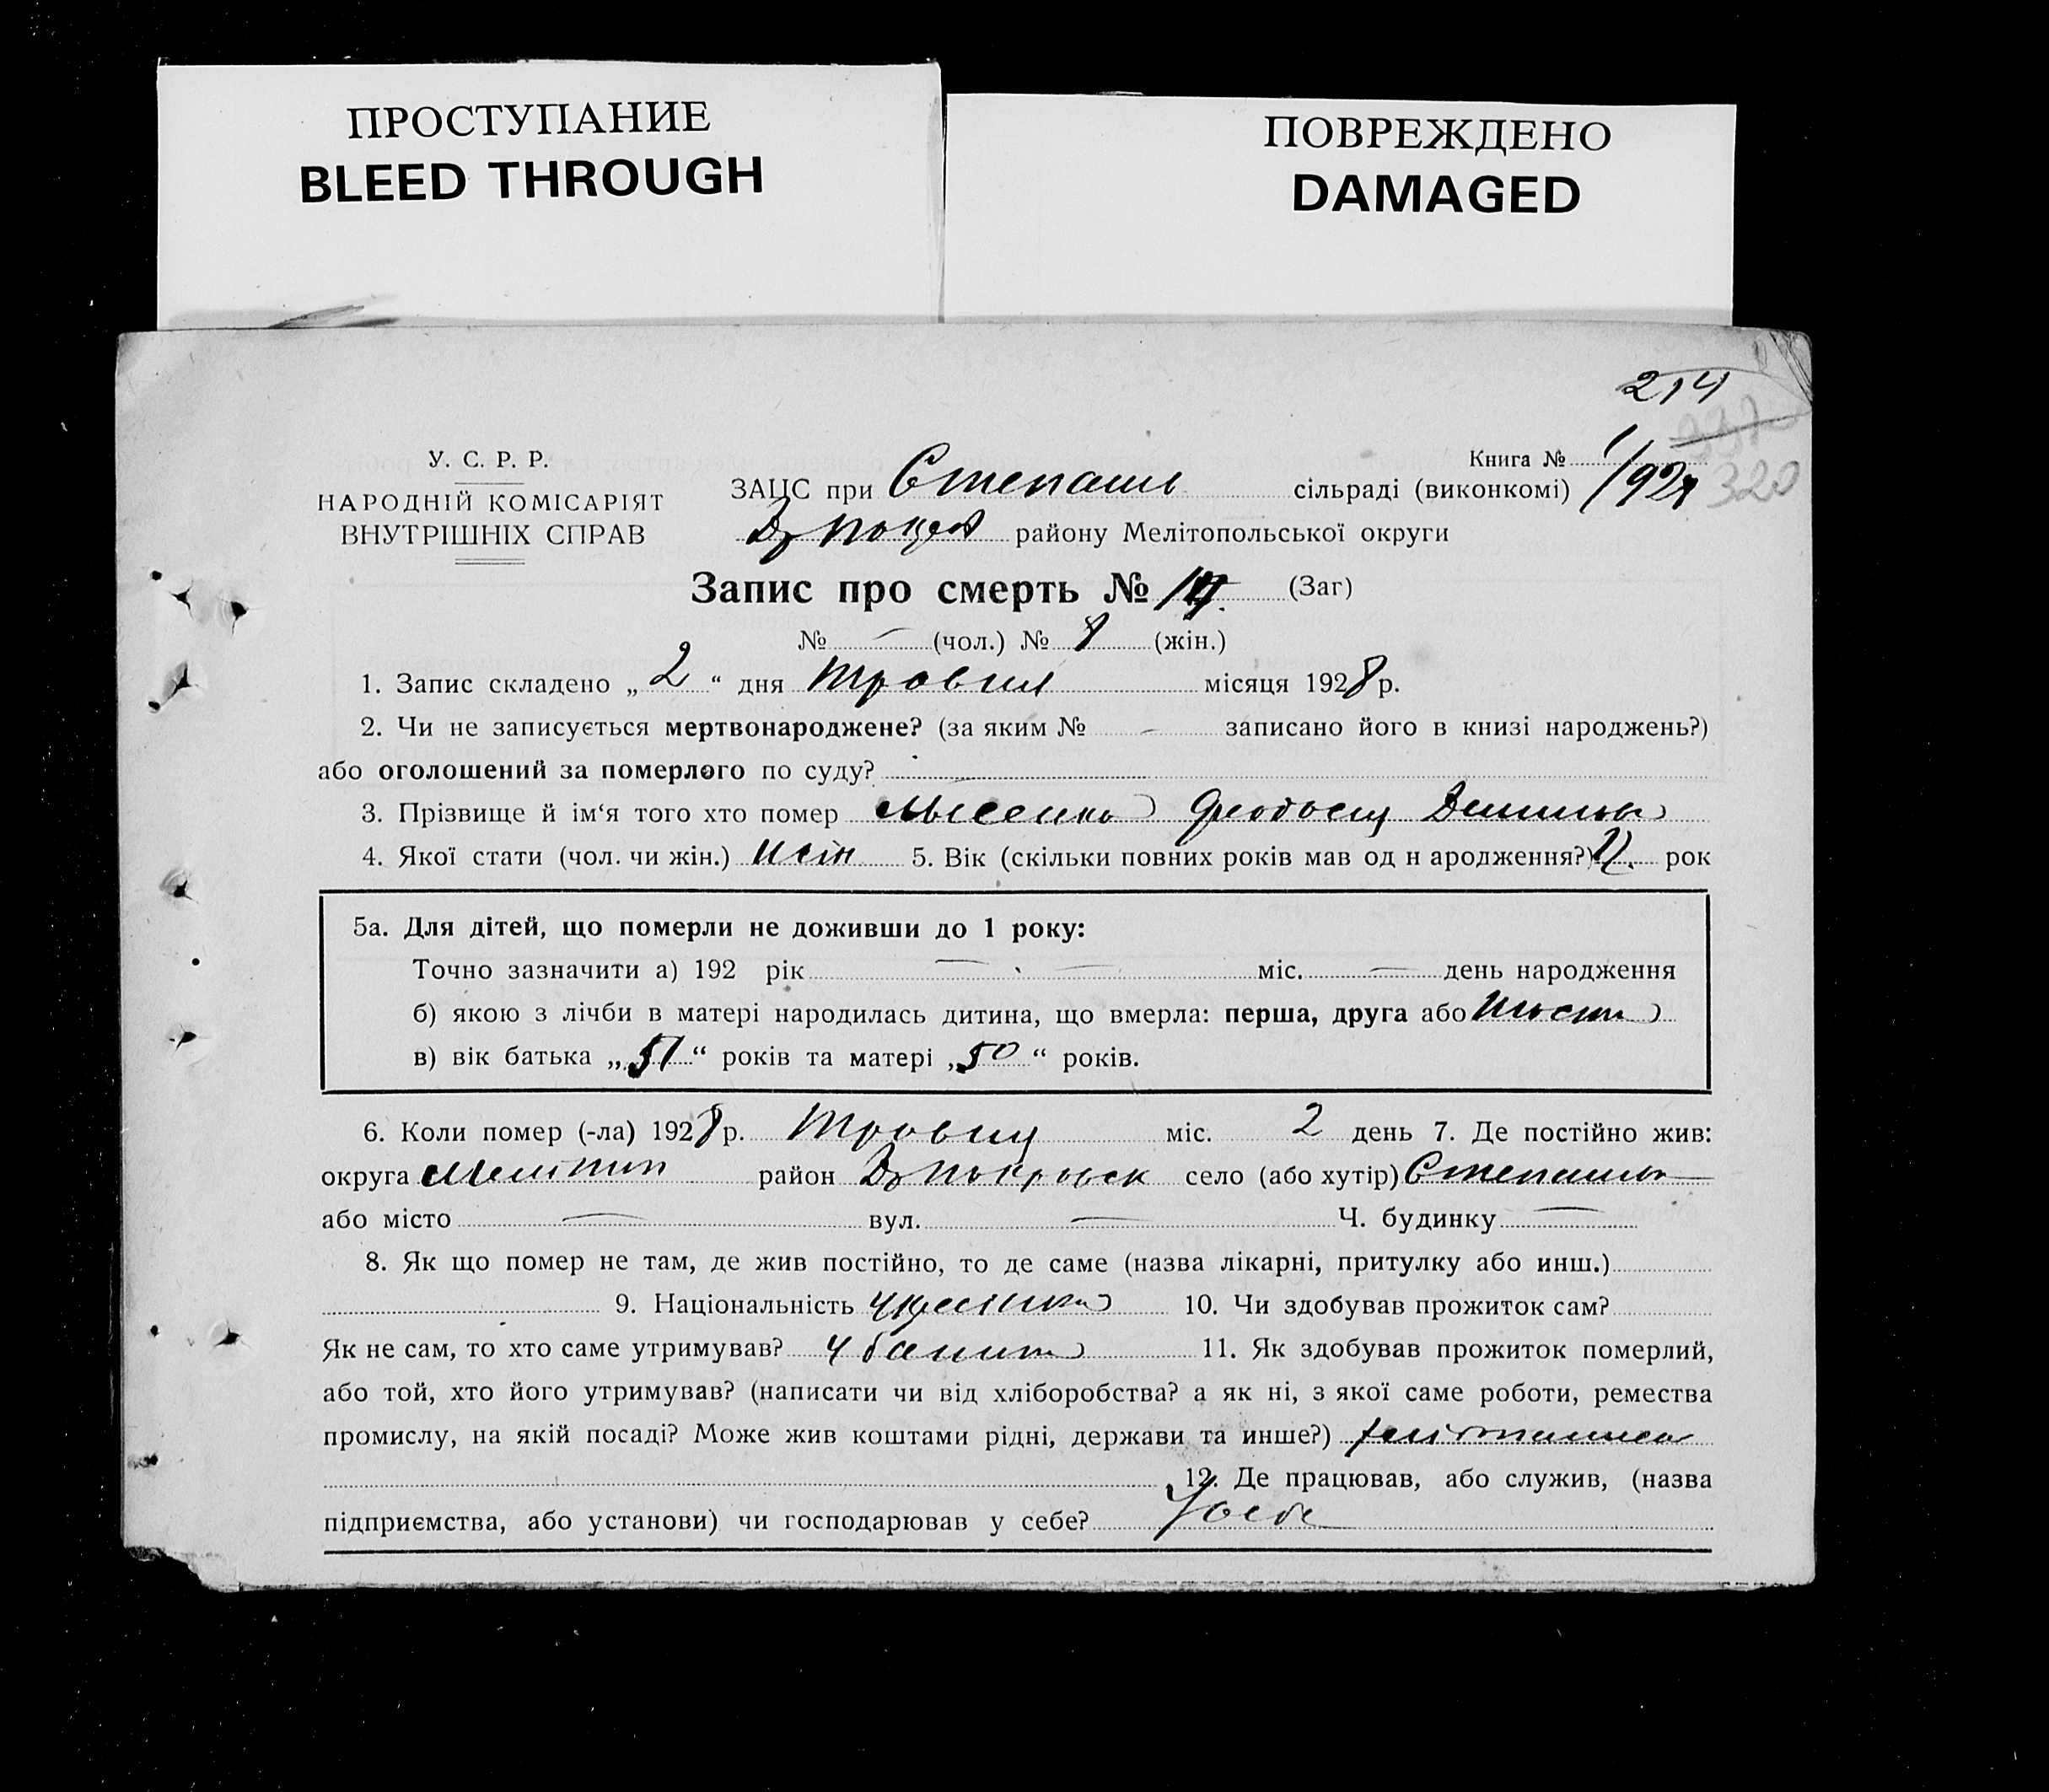 ПРОСТУПАНИЕ
BLEED THROUGH
ПОВРЕЖДЕНО
DAMAGED
214
337
320
У. С. Р. Р.
НАРОДНІЙ КОМІСАРІЯТ
ВНУТРІШНІХ СПРАВ
Книга № 1/1928
ЗАЦС при Степанів сільраді (виконкомі)
районy Мелітопольської округи
Запис про смерть № (Заг)
№ — (чол.) № 8 (жін.)
1. Запис складено „ 2 “ дня травня місяця 1928 р.
2. Чи не записується мертвонароджене? (за яким № - записано його в книзі народжень?)
або оголошений за померлого по суду?
3. Прізвище й ім‘я того хто помер
4. Якої стати (чол. чи жін.) жін 5. Вік (скільки повних років мав од н ародження?) рок
5а. Для дітей, що померли не доживши до 1 року:
Точно зазначити а) 192 рік — міс. — день народження
б) якою з лічби в матері народилась дитина, що вмерла: перша, друга або шоста
в) вік батька „ 51 “ років та матері „ 50 “ років.
6. Коли помер (-ла) 1928 р. Травня міс. 2 день 7. Де постійно жив:
округа Мелітоп район село (або хутір)
або місто — вул. — Ч. будинку —
8. Як що помер не там, де жив постійно, то де саме (назва лікарні, притулку або инш.)
9. Національність українка 10. Чи здобував прожиток сам?
Як не сам, то хто саме утримував? 11. Як здобував прожиток померлий,
або той, хто його утримував? (написати чи від хліборобства? а як ні, з якої саме роботи, ремества
промислу, на якій посаді? Може жив коштами рідні, держави та инше?)
12. Де працював, або служив, (назва
підприємства, або установи) чи господарював у себе? У себе